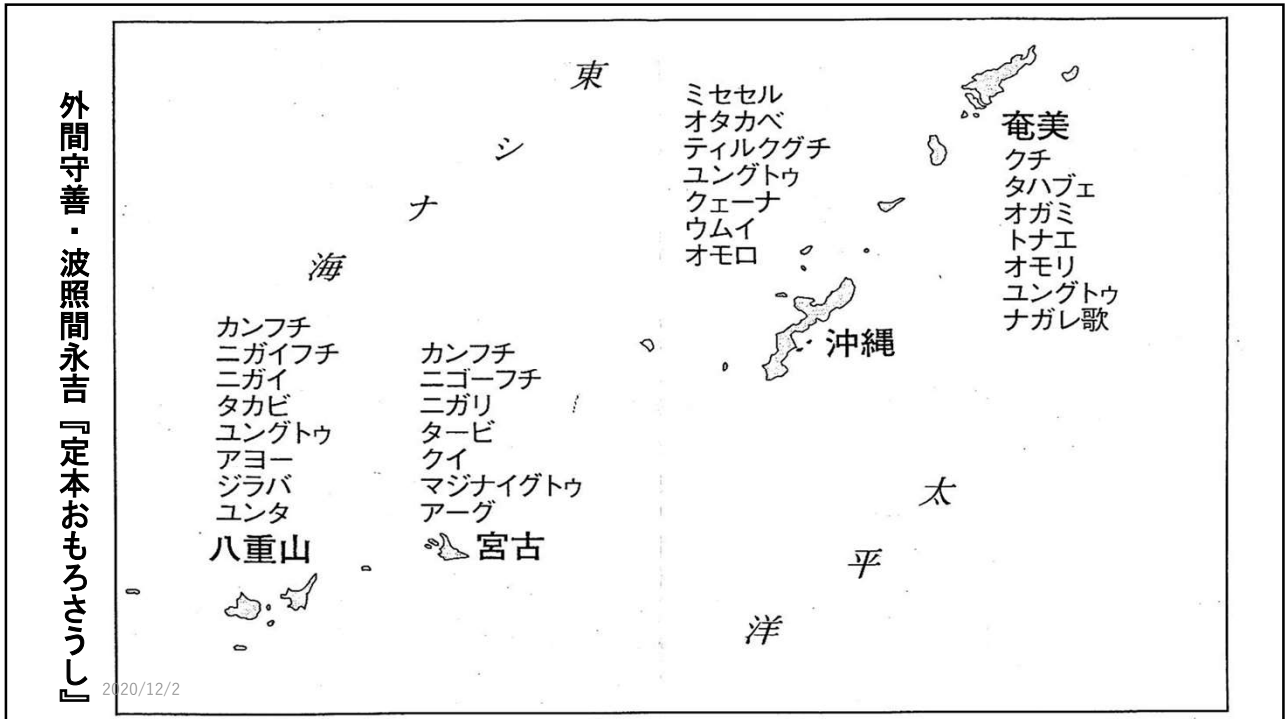 外間守善・波照間永吉『定本おもろさうし』
東シナ海
ミセセル
オタカベ
ティルクグチ
ユングトゥ
クェーナ
ウムイ
オモロ
沖縄
奄美
クチ
タハブェ
オガミ
トナエ
オモリ
ユングトゥ
ナガレ歌
カンフチ
ニガイフチ
ニガイ
タカビ
ユングトゥ
アヨー
ジラバ
ユンタ
八重山
カンフチ
ニゴーフチ
ニガリ
タービ
クイ
マジナイグトゥ
アーグ
宮古
太平洋
2020/12/2